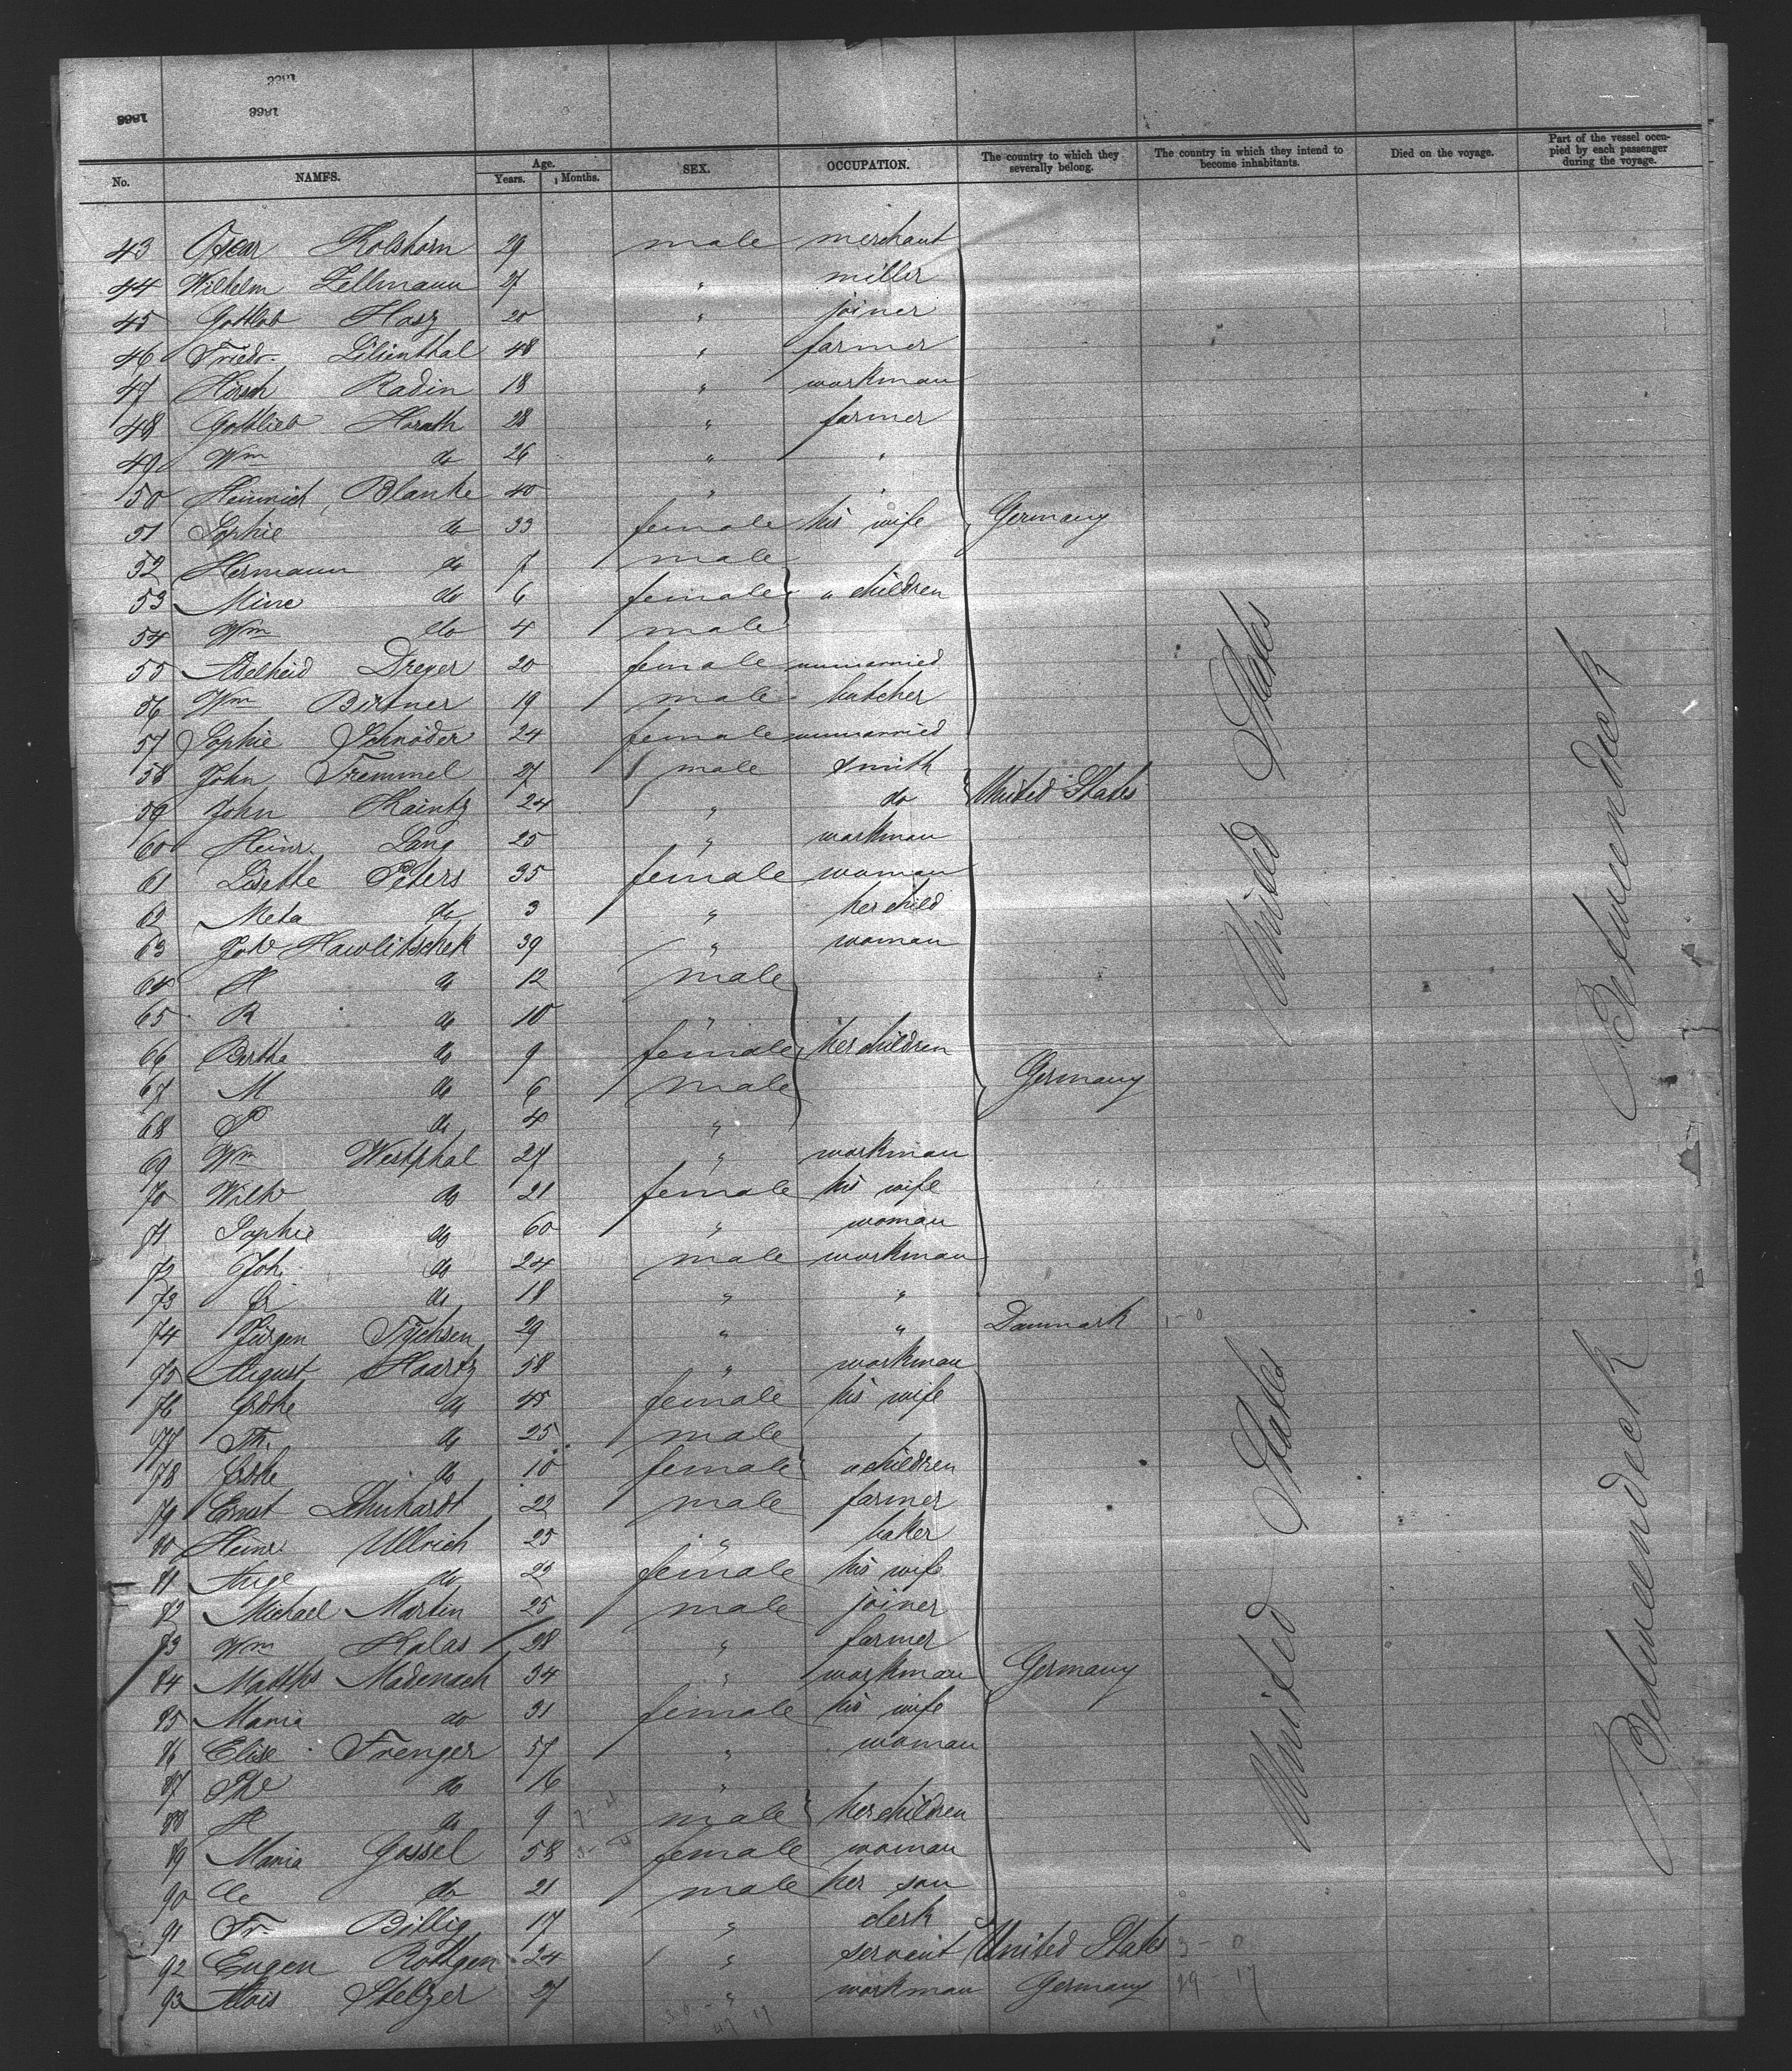 1866
1866
1866
No. NAMES. Age. Years. Months. SEX. OCCUPATION. The country to which they severally belong. The country in which they intend to become inhabitants. Died on the voyage. Part of the vessel occupied by each passenger during the voyage.
43 Oscar Kolshorn 29 male merchant
44 Wilhelm Zellmann 27 " miller
45 Gottlob Hasz 20 " joiner
46 Friedr. Lilienthal 48 " farmer
47 Hirsch Radin 18 " workman
48 Gottlieb Horath 28 " farmer
49 Wm do 26 " "
50 Heinrich Blanke 40 " "
51 Sophie do 33 female his wife Germany
52 Hermann do 7 male
53 Mine do 6 female " children
54 Wm do 4 male
55 Adelheid Dreyer 20 female unmarried
56 Wm Bittner 19 male butcher
57 Sophie Schnöder 24 female unmarried
58 John Trammel 27 male smith
59 John Kaintz 24 " do United States
60 Heinr. Lang 25 " workman
61 Lisette Peters 35 female woman
62 Meta do 3 " her child
63 Hawlitschek 39 " woman
64 H do 12 male
65 R do 10 "
66 Bertha do 9 female her children
67 M do 6 male Germany
68 P do 4 "
69 Wm Westphal 27 " workman
70 Wilh do 21 female his wife
71 Sophie do 60 " woman
72 Joh. do 24 male workman
73 Fr do 18 " "
74 Jürgen Tychsen 29 " " Danmark 1-0
75 August Haartz 58 " workman
76 do 45 female his wife
77 Th. do 25 male
78 do 10 female " children
79 Ernst Lhuhardt 22 male farmer
80 Heinr. Ullrich 25 " baker
81 Auge do 22 female his wife
82 Michael Martin 25 male joiner
83 Wm Kalas 28 " farmer
84 Matths Madenach 34 " workman Germany
85 Maria do 31 female his wife
86 Elise Frenger 57 " woman
87 do 16 "
88 H do 9 male her children
89 Maria Gossel 58 female woman
90 do 21 male her son
91 Fr. Billig 17 " clerk
92 Eugen Röttgen 24 " servant United States 3-0
93 Alois Stelzer 27 " workman Germany 29-17
United States
Betweendeck
United States
Betweendeck